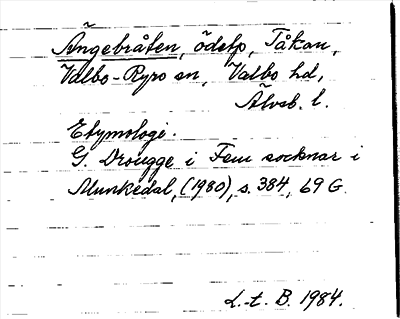 Ängebråten, ödetp, Tåkan,
Valbo-Ryro sn, Valbo hd,
Älvsb. l.
Etymologi.
G. Drougge i Fem socknar i
Munkedal, (1980), s. 384, 69 G.
L.-t. B. 1984.